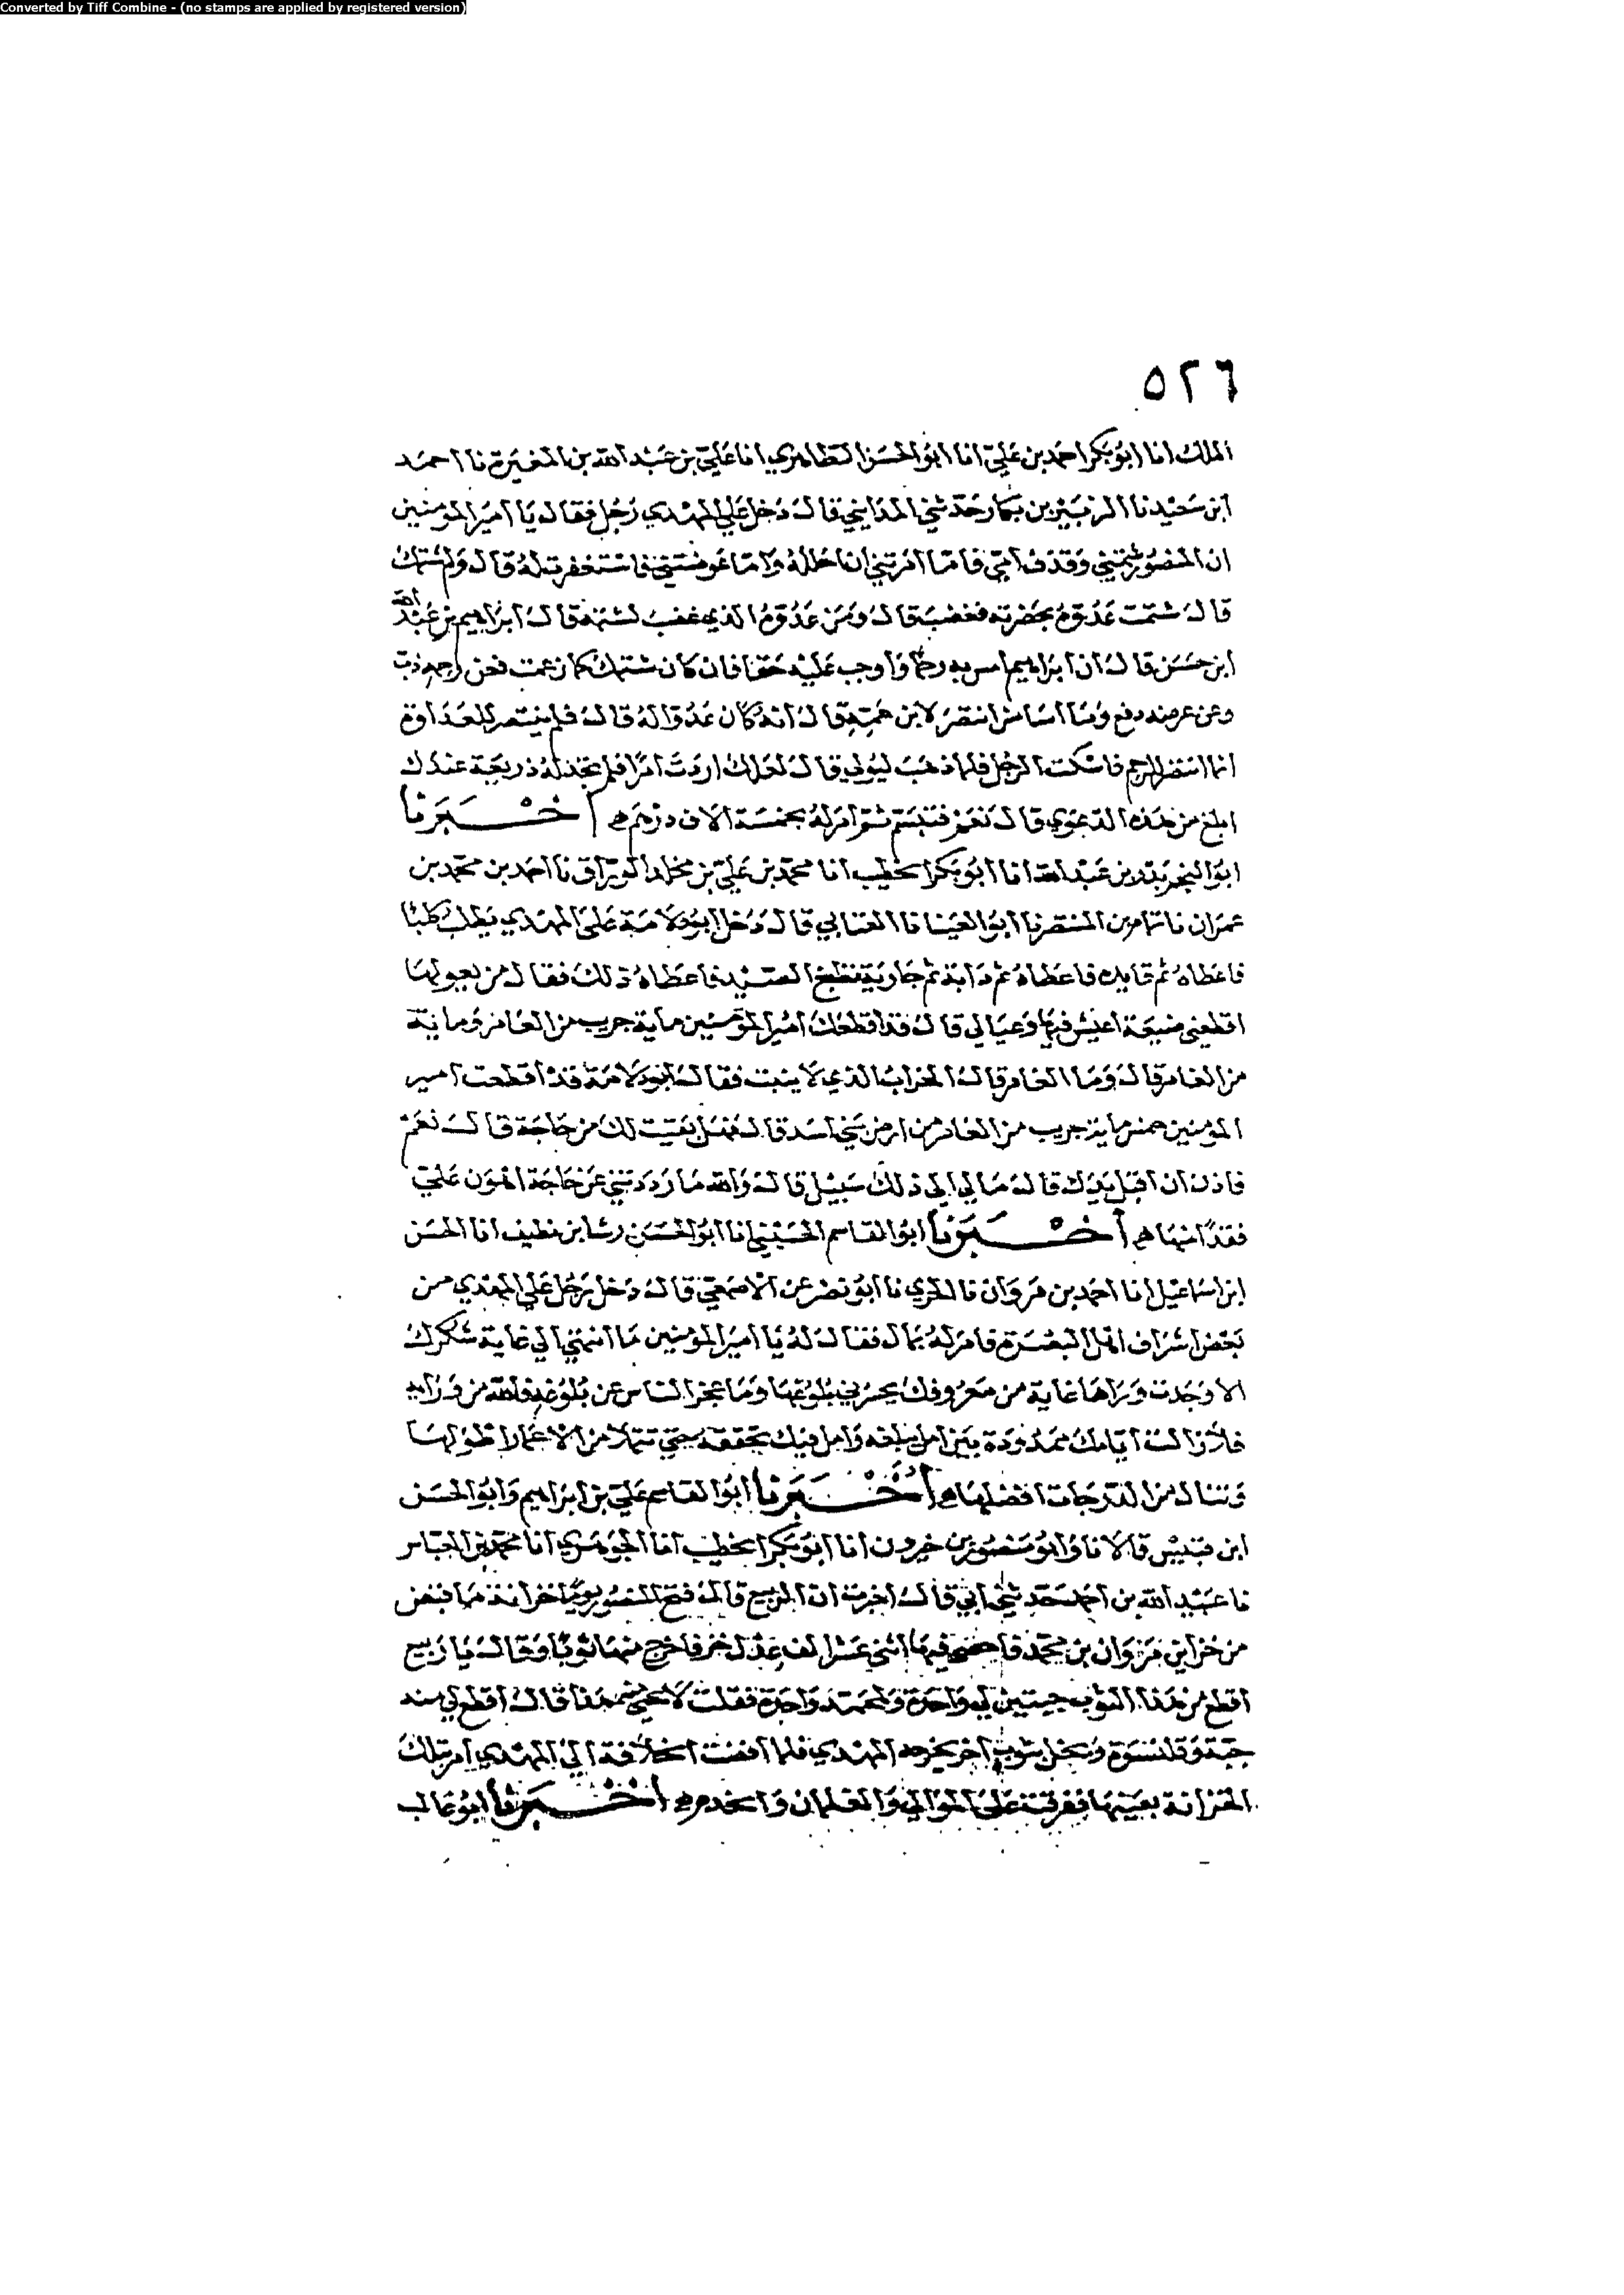 Converted by Tiff Combine - (no stamps are applied by registered version)
٥٢٦
الملك انا ابو بكر احمد بن علي انا ابو الحسن الطاهري انا علي بن عبد الله بن المغيرة نا احمد
ابن سعيد نا الزبير بن بكار حدثني المدايني قال دخل علي المهدي رجل فقال يا امير المومنين
ان المنصور شتمني وقذف امي فاما امرتني ان احلله واما عوضتني فاستغفرت له قال ولم شتمك
قال شتمت عدوه بحضرته فغضب قال ومن عدوه الذي غضب لشتمه قال ابراهيم بن عبد الله
ابن حسن قال ان ابراهيم امس به رحما واوجب عليه حقا فان كان شتمك كما زعمت فعن رحمه ذب
وعن عرضه دفع وما اسا من انتصر لابن عمه قال انه كان عدوا له قال فلم ينتصر للعداوة
انما انتصر للرحم فاسكت الرجل فلما ذهب ليولي قال لعلك اردت امرا فلم تجد له ذريعة عندك
ابلغ من هذه الدعوي قال نعم فتبسم ثم امر له بخمسة الاف درهم اخبرنا
ابو النجم بدر بن عبد الله انا ابو بكر الخطيب انا محمد بن علي بن مخلد الوراق نا احمد بن محمد بن
عمران نا تمام بن المنتصر نا ابو العينا نا العتابي قال دخل ابو دلامة على المهدي يطلب كلبا
فاعطاه ثم قايده فاعطاه ثم دابة ثم جارية تطبخ الصيد فاعطاه ذلك فقال من يعولها
اقطعني ضيعة اعيش فيها وعيالي قال قد اقطعك امير المومنين ماية جريب من العامر وماية
من الغامر قال وما الغامر قال الخراب الذي لا ينبت فقال ابو دلامة قد اقطعت امير
المومنين خمس ماية جريب من الغامر من ارض بني اسد قال فهل بقيت لك من حاجة قال نعم
فاذن ان اقبل يدك قال ما لي الى ذلك سبيل قال والله ما رددتني عن حاجة اهون علي
فقدا منها اخبرنا ابو القاسم الحسيني انا ابو الحسن رشا بن نظيف انا الحسن
ابن اسماعيل انا احمد بن مروان نا الحربي نا ابو نصر عن الاصمعي قال دخل رجل علي المهدي من
بعض اشراف اهل البصرة فامر له بمال فقال له يا امير المومنين ما انتهي الي غاية شكرك
الا وجدت وراها غاية من معروفك يحسرني بلوغها وما عجز الناس عن بلوغه فالله من ورايه
فلا زالت ايامك ممدودة بين امل تبلغه وامل فيك تحققه حتى تتملا من الاعمار اطولها
وتنال من الدرجات افضلها اخبرنا ابو القاسم علي بن ابراهيم وابو الحسن
ابن قبيس قالا نا وابو منصور بن خيرون انا ابو بكر الخطيب انا الجوهري انا محمد بن العباس
نا عبيد الله بن احمد حدثني ابي قال اخبرت ان الربيع قال فتح المنصور يوما خزانة مما قبض
من خزاين مروان بن محمد فاحصى فيها اثني عشر الف عدل خز فاخرج منها ثوبا وقال يا ربيع
اقطع من هذا الثوب جبتين لي واحدة ولمحمد واحدة فقلت لا يجي منه هذا قال اقطع لي منه
جبة وقلنسوة وبخل بثوب اخر يخرجه المهدي فلما افضت الخلافة الي المهدي امر بتلك
الخزانة بعينها ففرقت على الموالي والغلمان والخدم اخبرنا ابو غالب